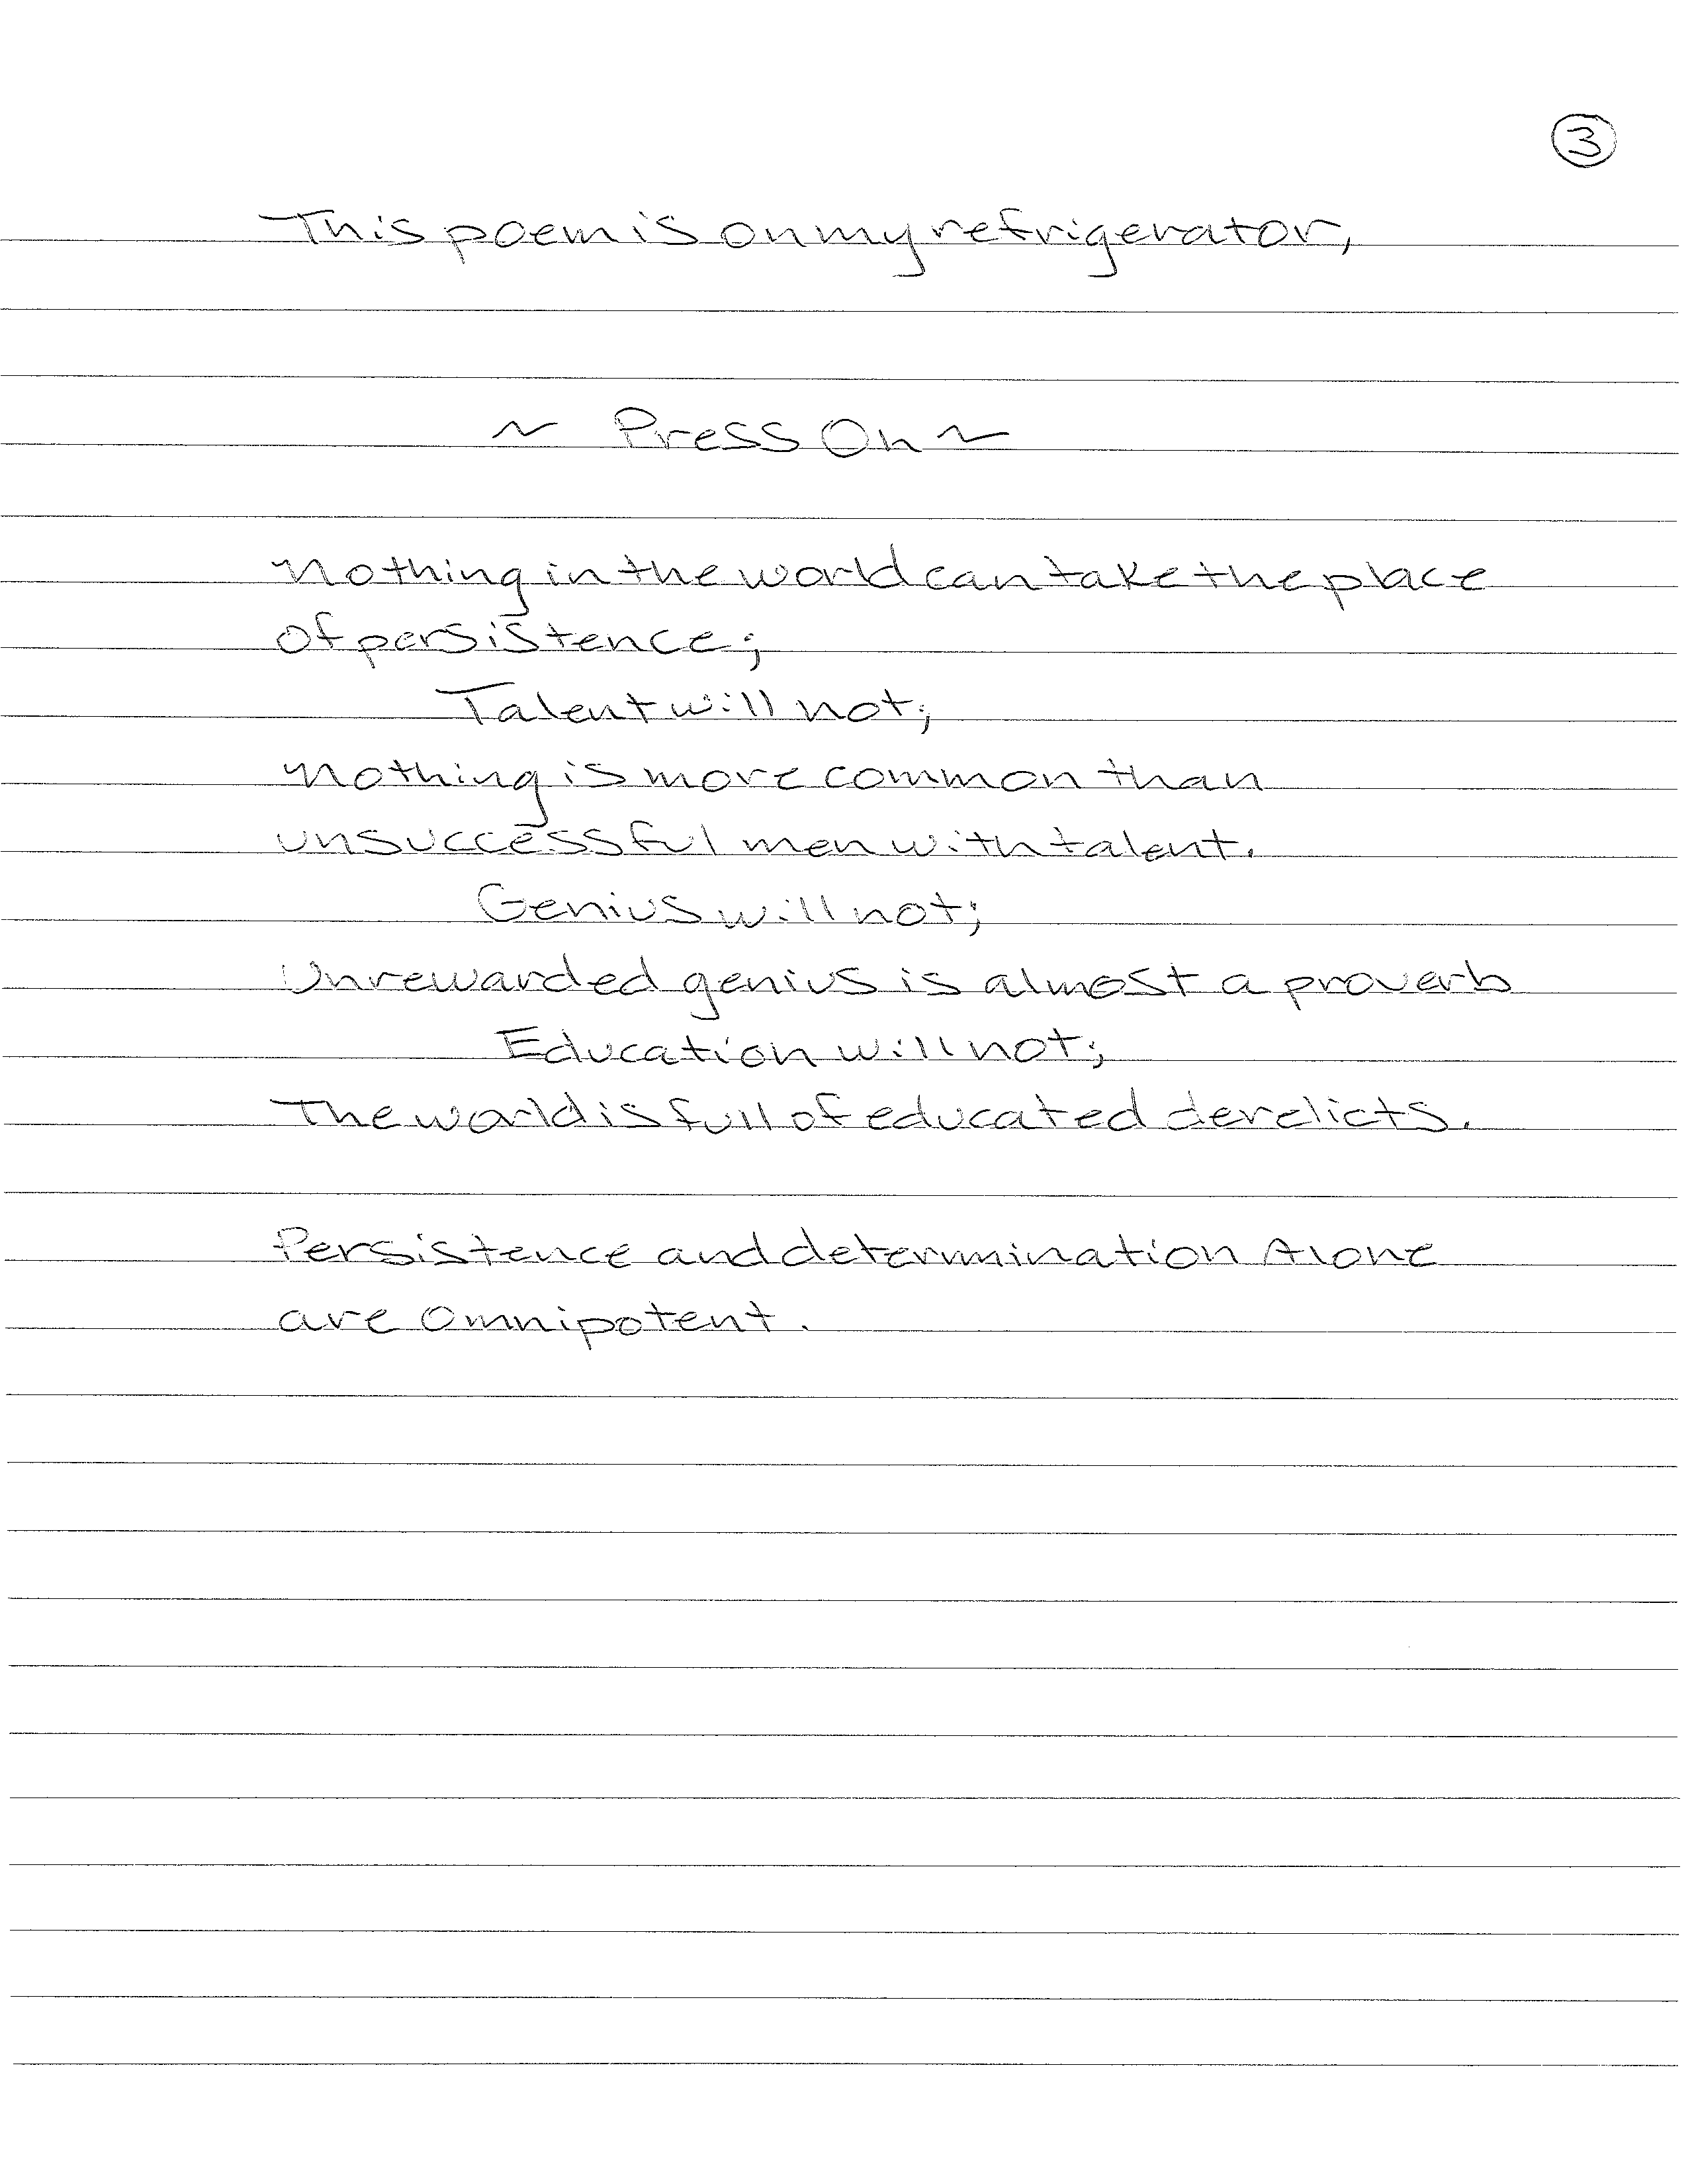 3
This poem is on my refrigerator,
~ Press On ~
Nothing in the world can take the place
of persistence;
Talent will not;
Nothing is more common than
unsuccessful men with talent.
Genius will not;
Unrewarded genius is almost a proverb
Education will not;
The world is full of educated derelicts.
Persistence and determination Alone
are Omnipotent.